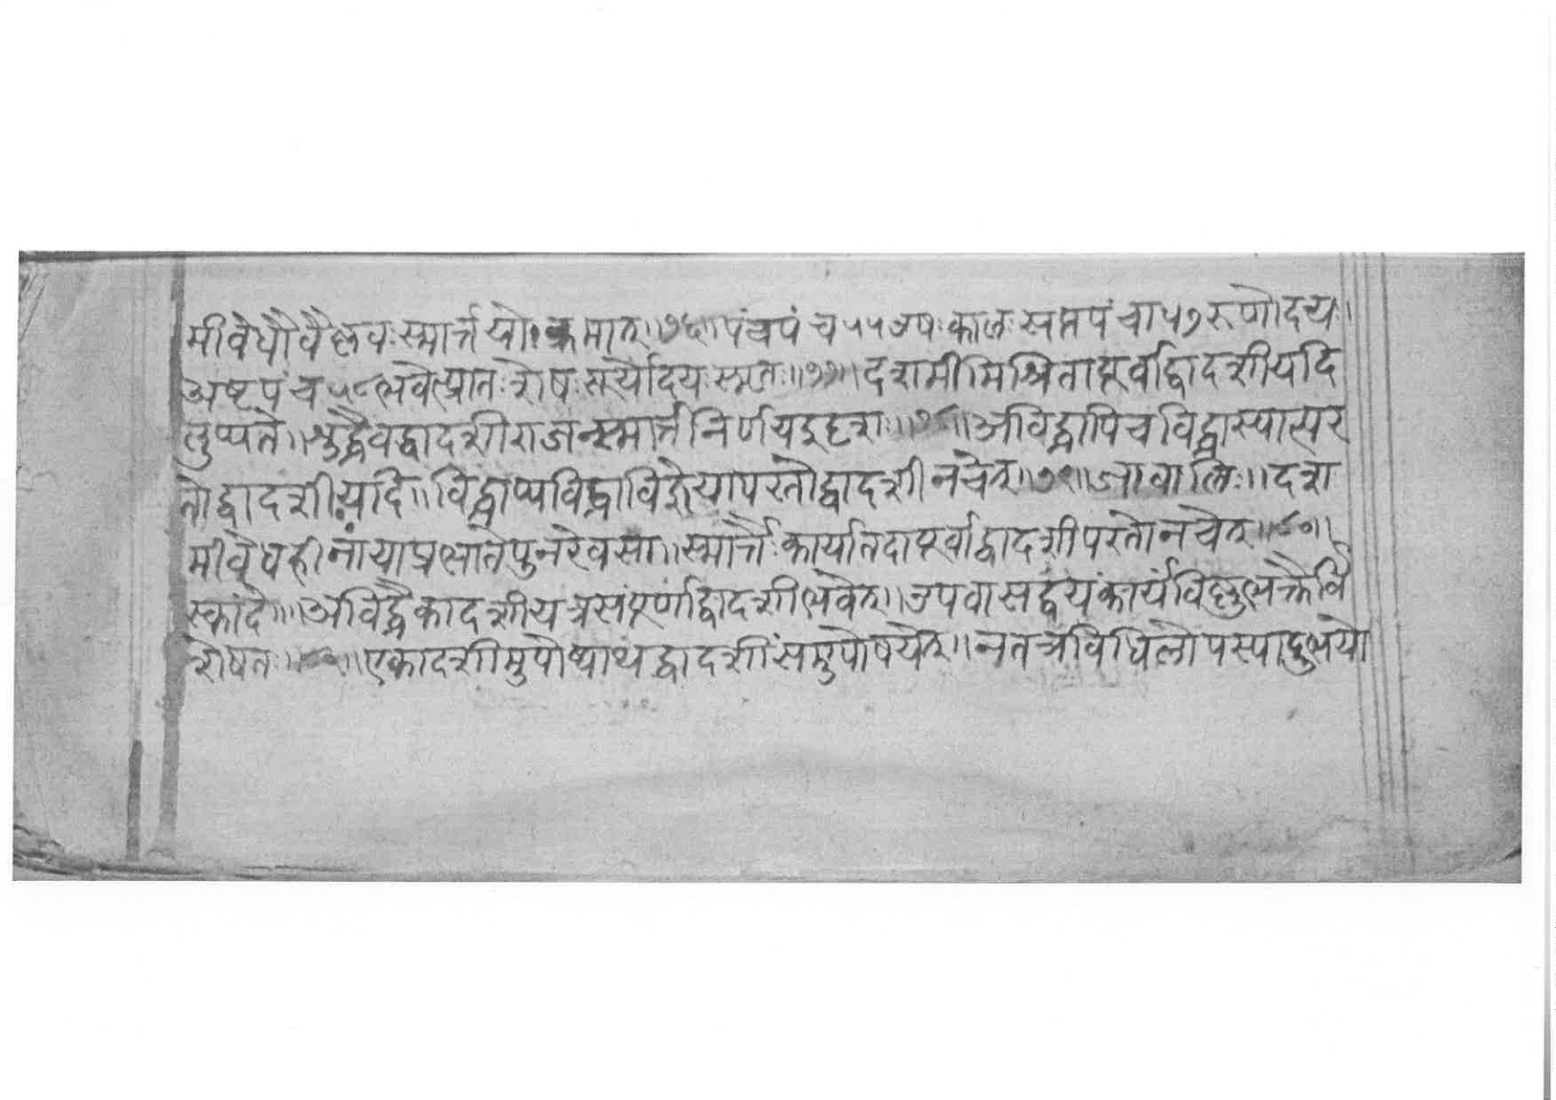 मीवेधौवैष्णवःस्मार्त्तयोःक्रमात्॥७६॥पंचपंच५५उषःकालःसप्तपंचा५७रुणोदयः।
अष्टपंच५८भवेत्प्रातःशेषःसूर्योदयःस्मृतः॥७७॥दशमीमिश्रितापूर्वाद्वादशीयदि
लुप्यते॥शुद्धैवद्वादशीराजन्स्मार्त्तनिर्णयइदृशः॥७८॥अविद्धापिचविद्धास्यात्पर
तोद्वादशीयदि॥विद्धाप्यविद्धाविज्ञेयापरतोद्वादशीनचेत्॥७९॥जावालिः॥दश
मीवेधहीनांयाप्रभातेपुनरेवसा॥स्मार्त्तैःकार्यातदापूर्वाद्वादशीपरतोनचेत्॥८०॥
स्कांदे॥अविद्धैकादशीयत्रसंपूर्णाद्वादशीभवेत्॥उपवासद्वयंकार्यंविष्णुभक्तैर्वि
शेषतः॥एकादशीमुपोष्याथद्वादशींसमुपोषयेत्॥नतत्रविधिलोपस्यादुभयो